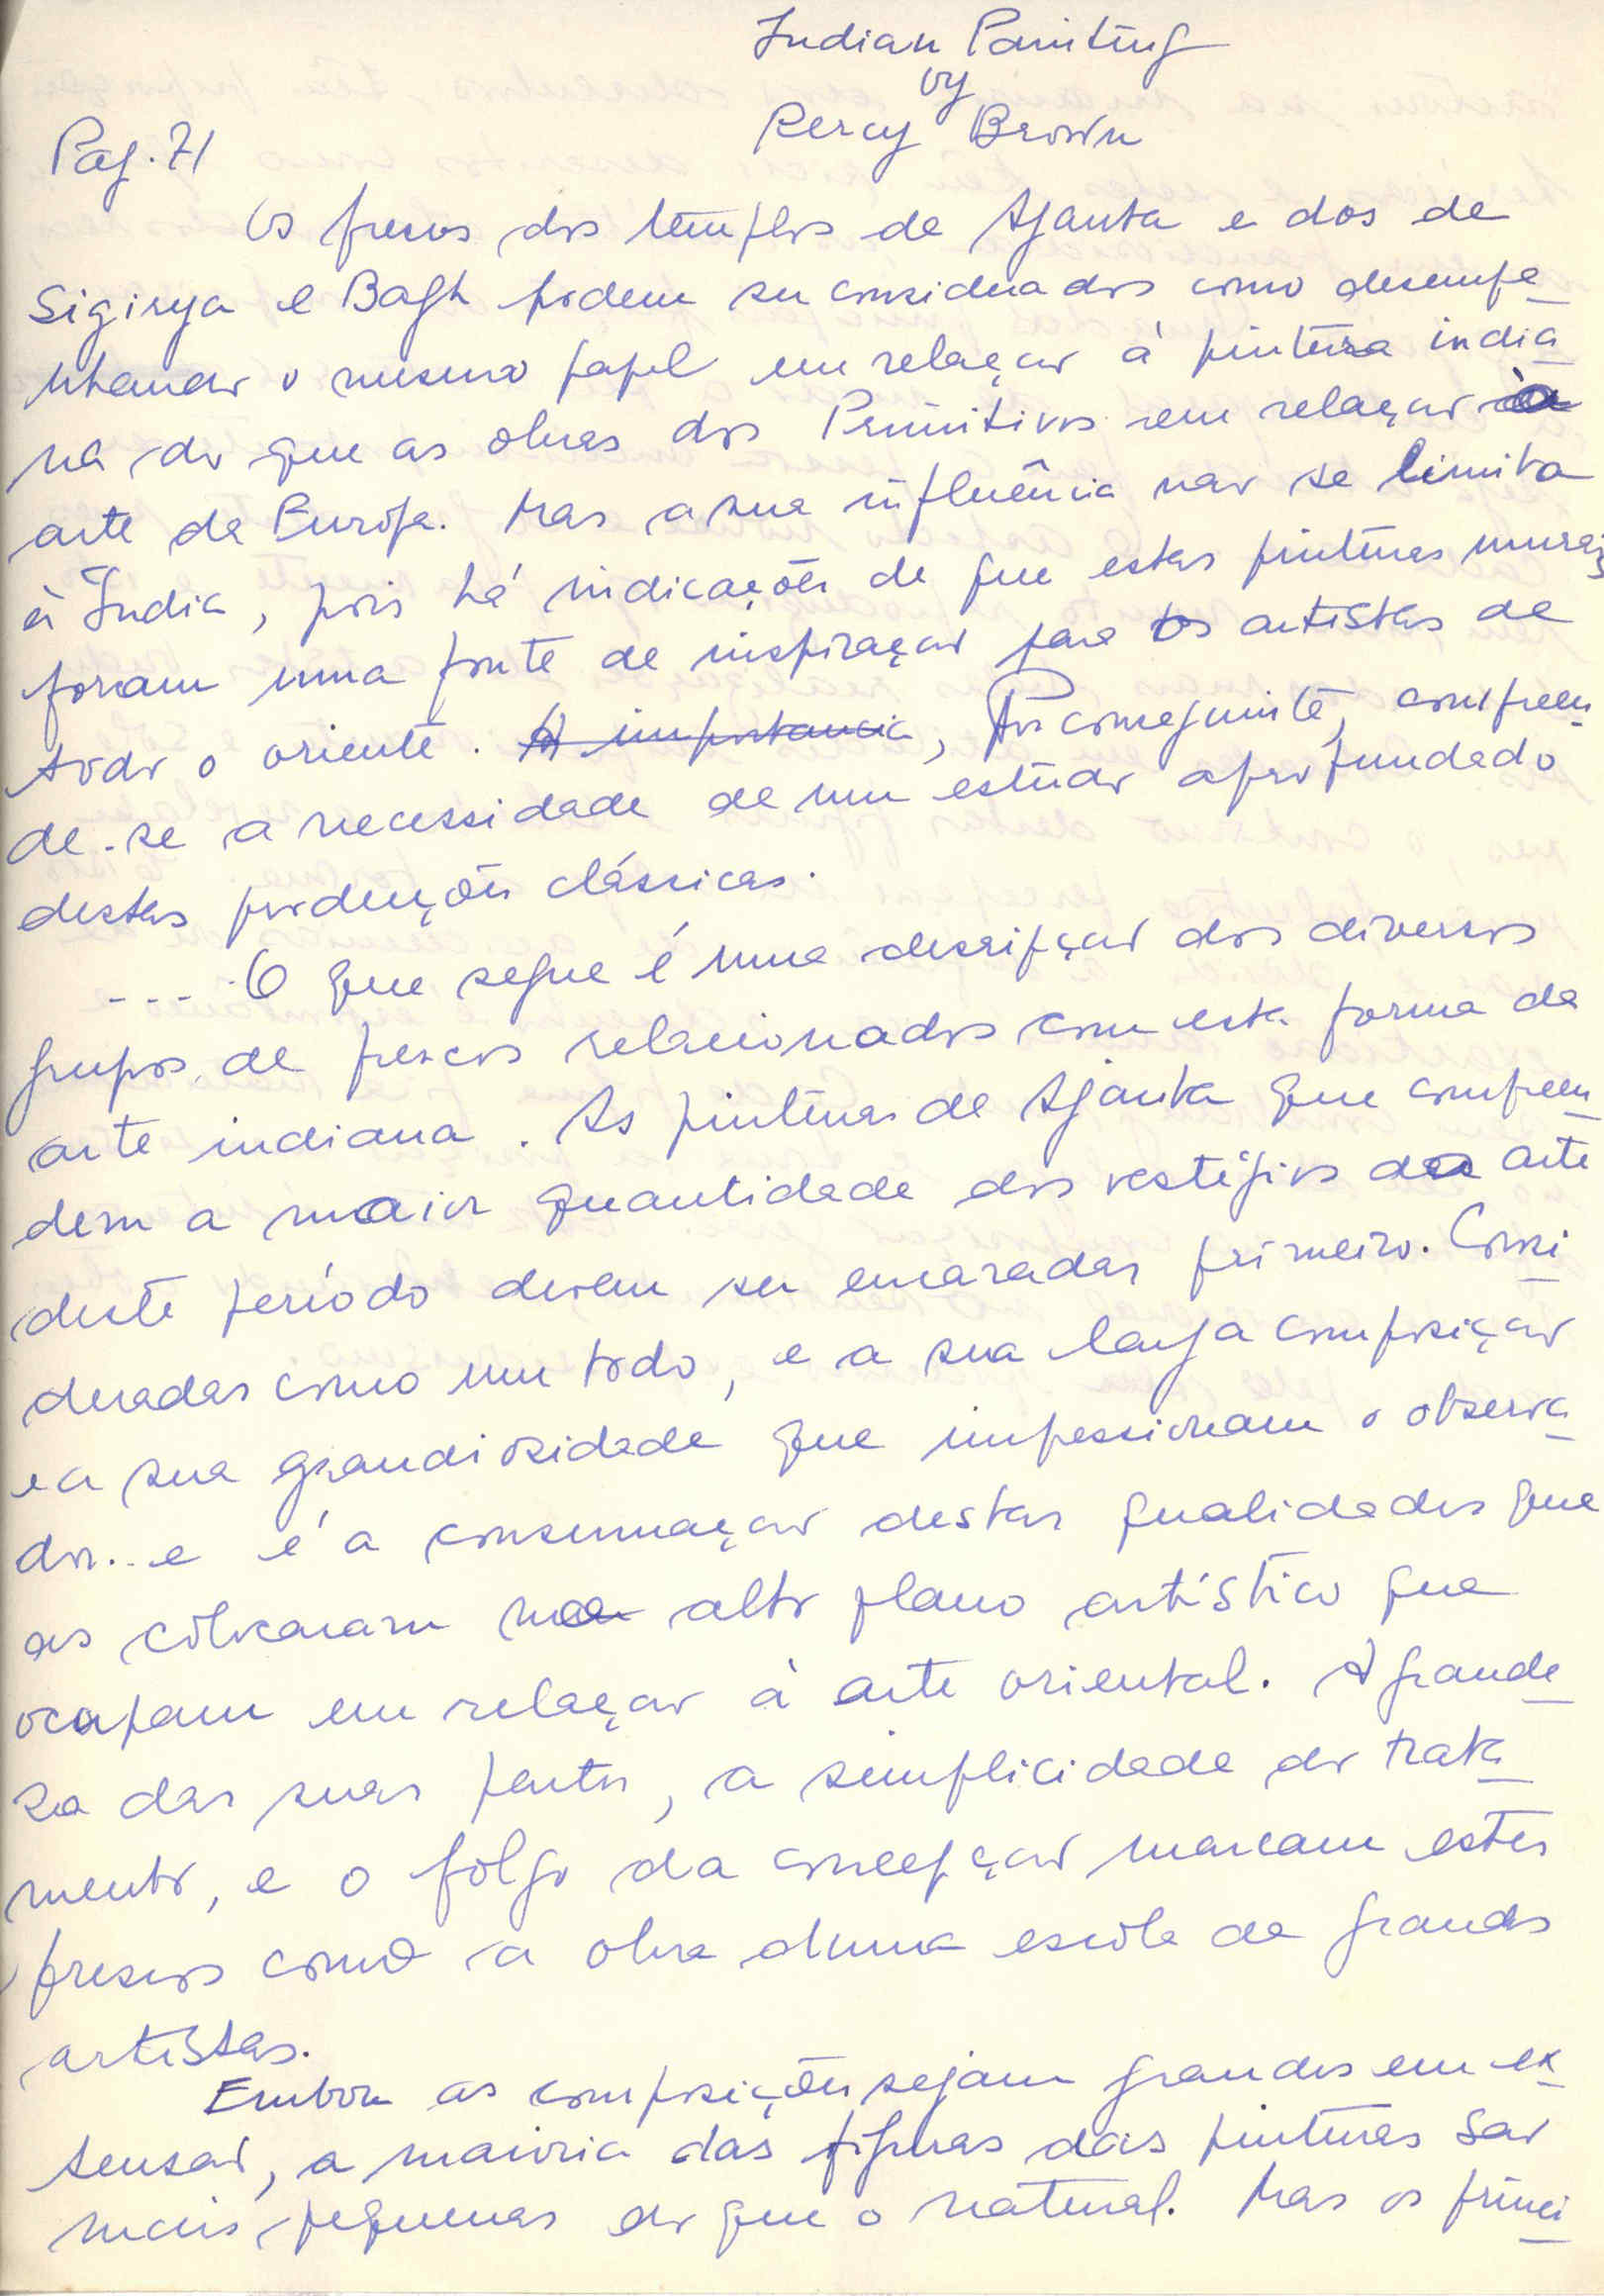 Indian Painting
by
Percy Brown
Pag. 71
Os frescos dos templos de Ajanta e dos de
Sigirya e Bagh podem ser considerados como desempe
nhando o mesmo papel em relação à pintura india
na do que as obras dos Primitivos em relação à
arte da Europa. Mas a sua influência não se limita
à India, pois há indicações de que estas pinturas murais
foram uma fonte de inspiração para os artistas de
todo o oriente. A importancia, Por conseguinte, compreen
de-se a necessidade de um estudo aprofundado
destas produções clássicas.
---- O que segue é uma descripção dos diversos
grupos de frescos relacionados com esta forma da
arte indiana. As pinturas de Ajanta que compreen
dem a maior quantidade dos vestígios da arte
deste período devem ser encaradas primeiro. Consi
deradas como um todo, e a sua larga composição
e a sua grandiosidade que impressionam o observa
dor... e é a consumação destas qualidades que
as colocaram no alto plano artístico que
ocupam em relação à arte oriental. A grande
za das suas partes, a simplicidade do trata
mento, e o fôlgo da concepção marcam estes
frescos como a obra duma escola de grandes
artistas.
Embora as composições sejam grandes em ex
tensão, a maioria das figuras das pinturas são
mais pequenas do que o natural. Mas os princi